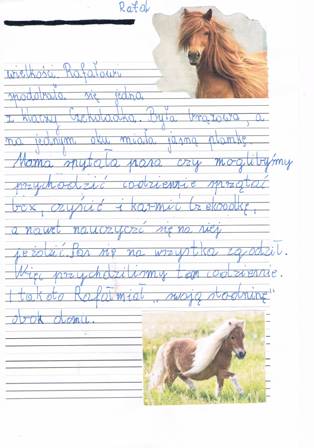 Rafał
wielkości. Rafałowi
spodobała się jedna
z klaczy Czekoladka. Była brązowa, a
na jednym oku miała jasną plamkę.
Mama spytała pana czy moglibyśmy
przychodzić codziennie sprzątać
box, czyścić i karmić
a nawet nauczyć się na niej
jeździć. Pan się na wszystko zgodził.
Więc przychdziliśmy tam codziennie.
I tak oto Rafał miał „swoją stodninę"
obok domu.